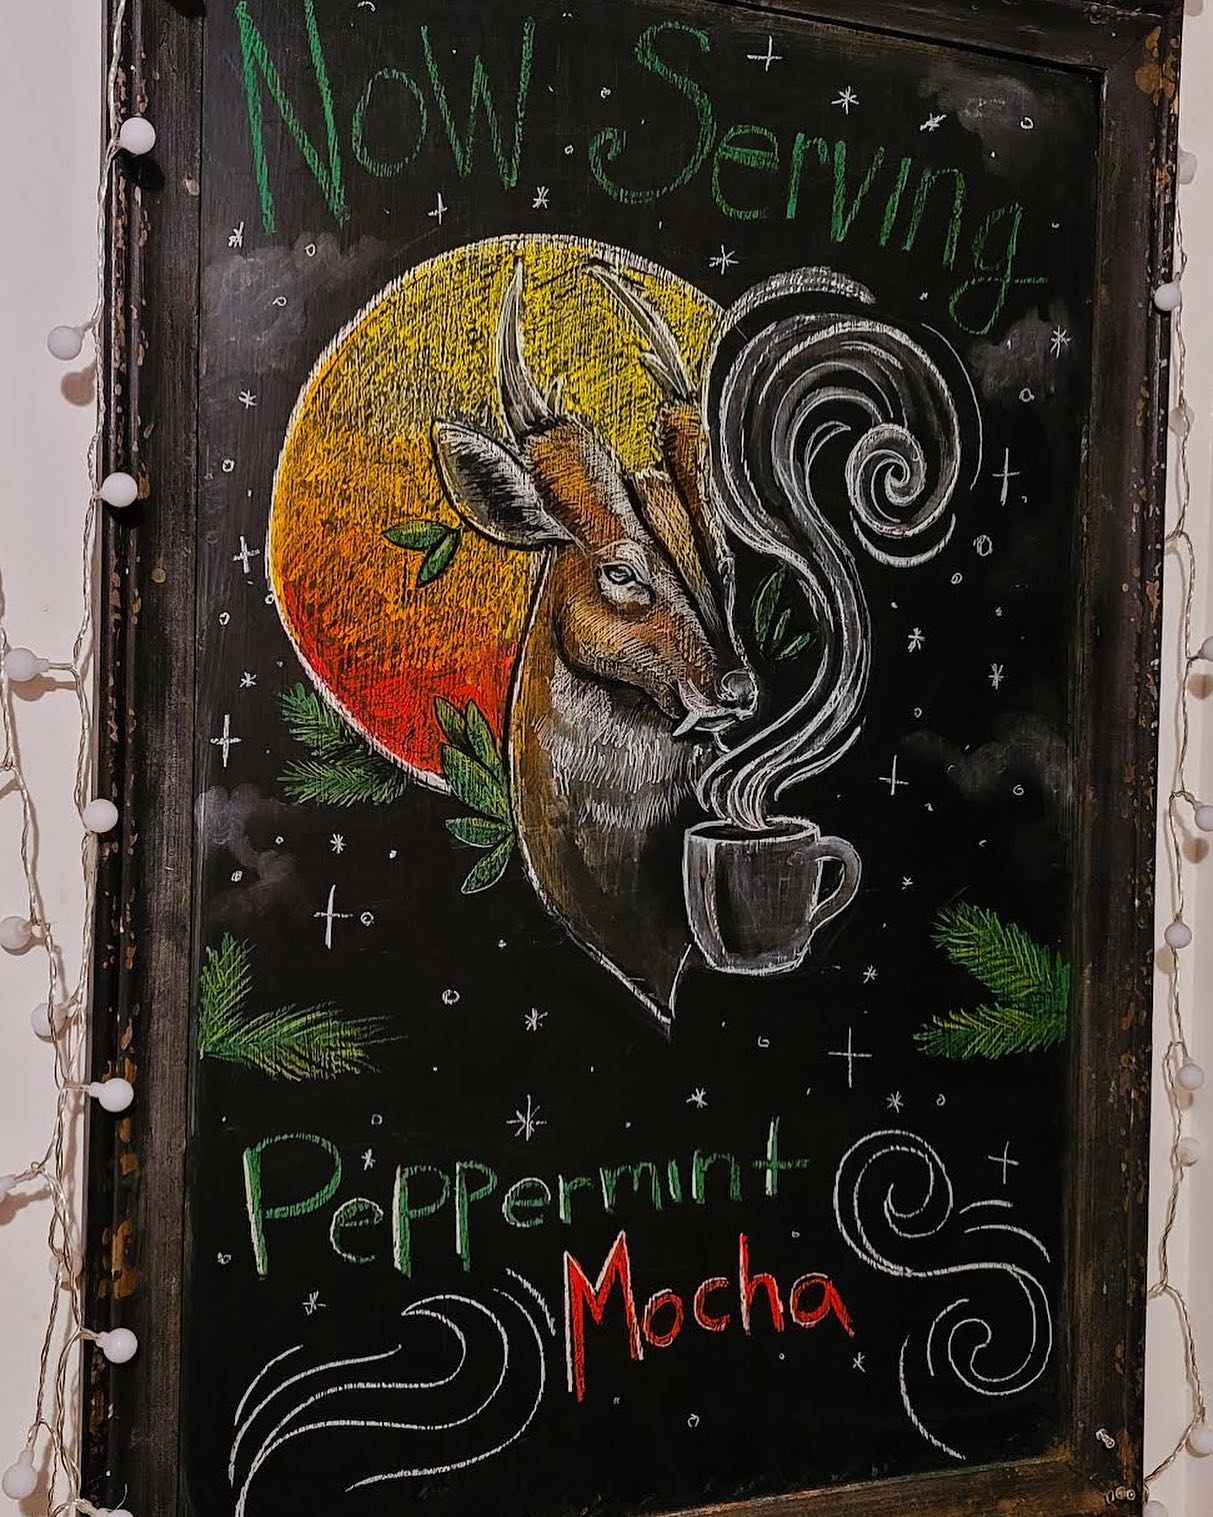 Now Serving
Peppermint
Mocha